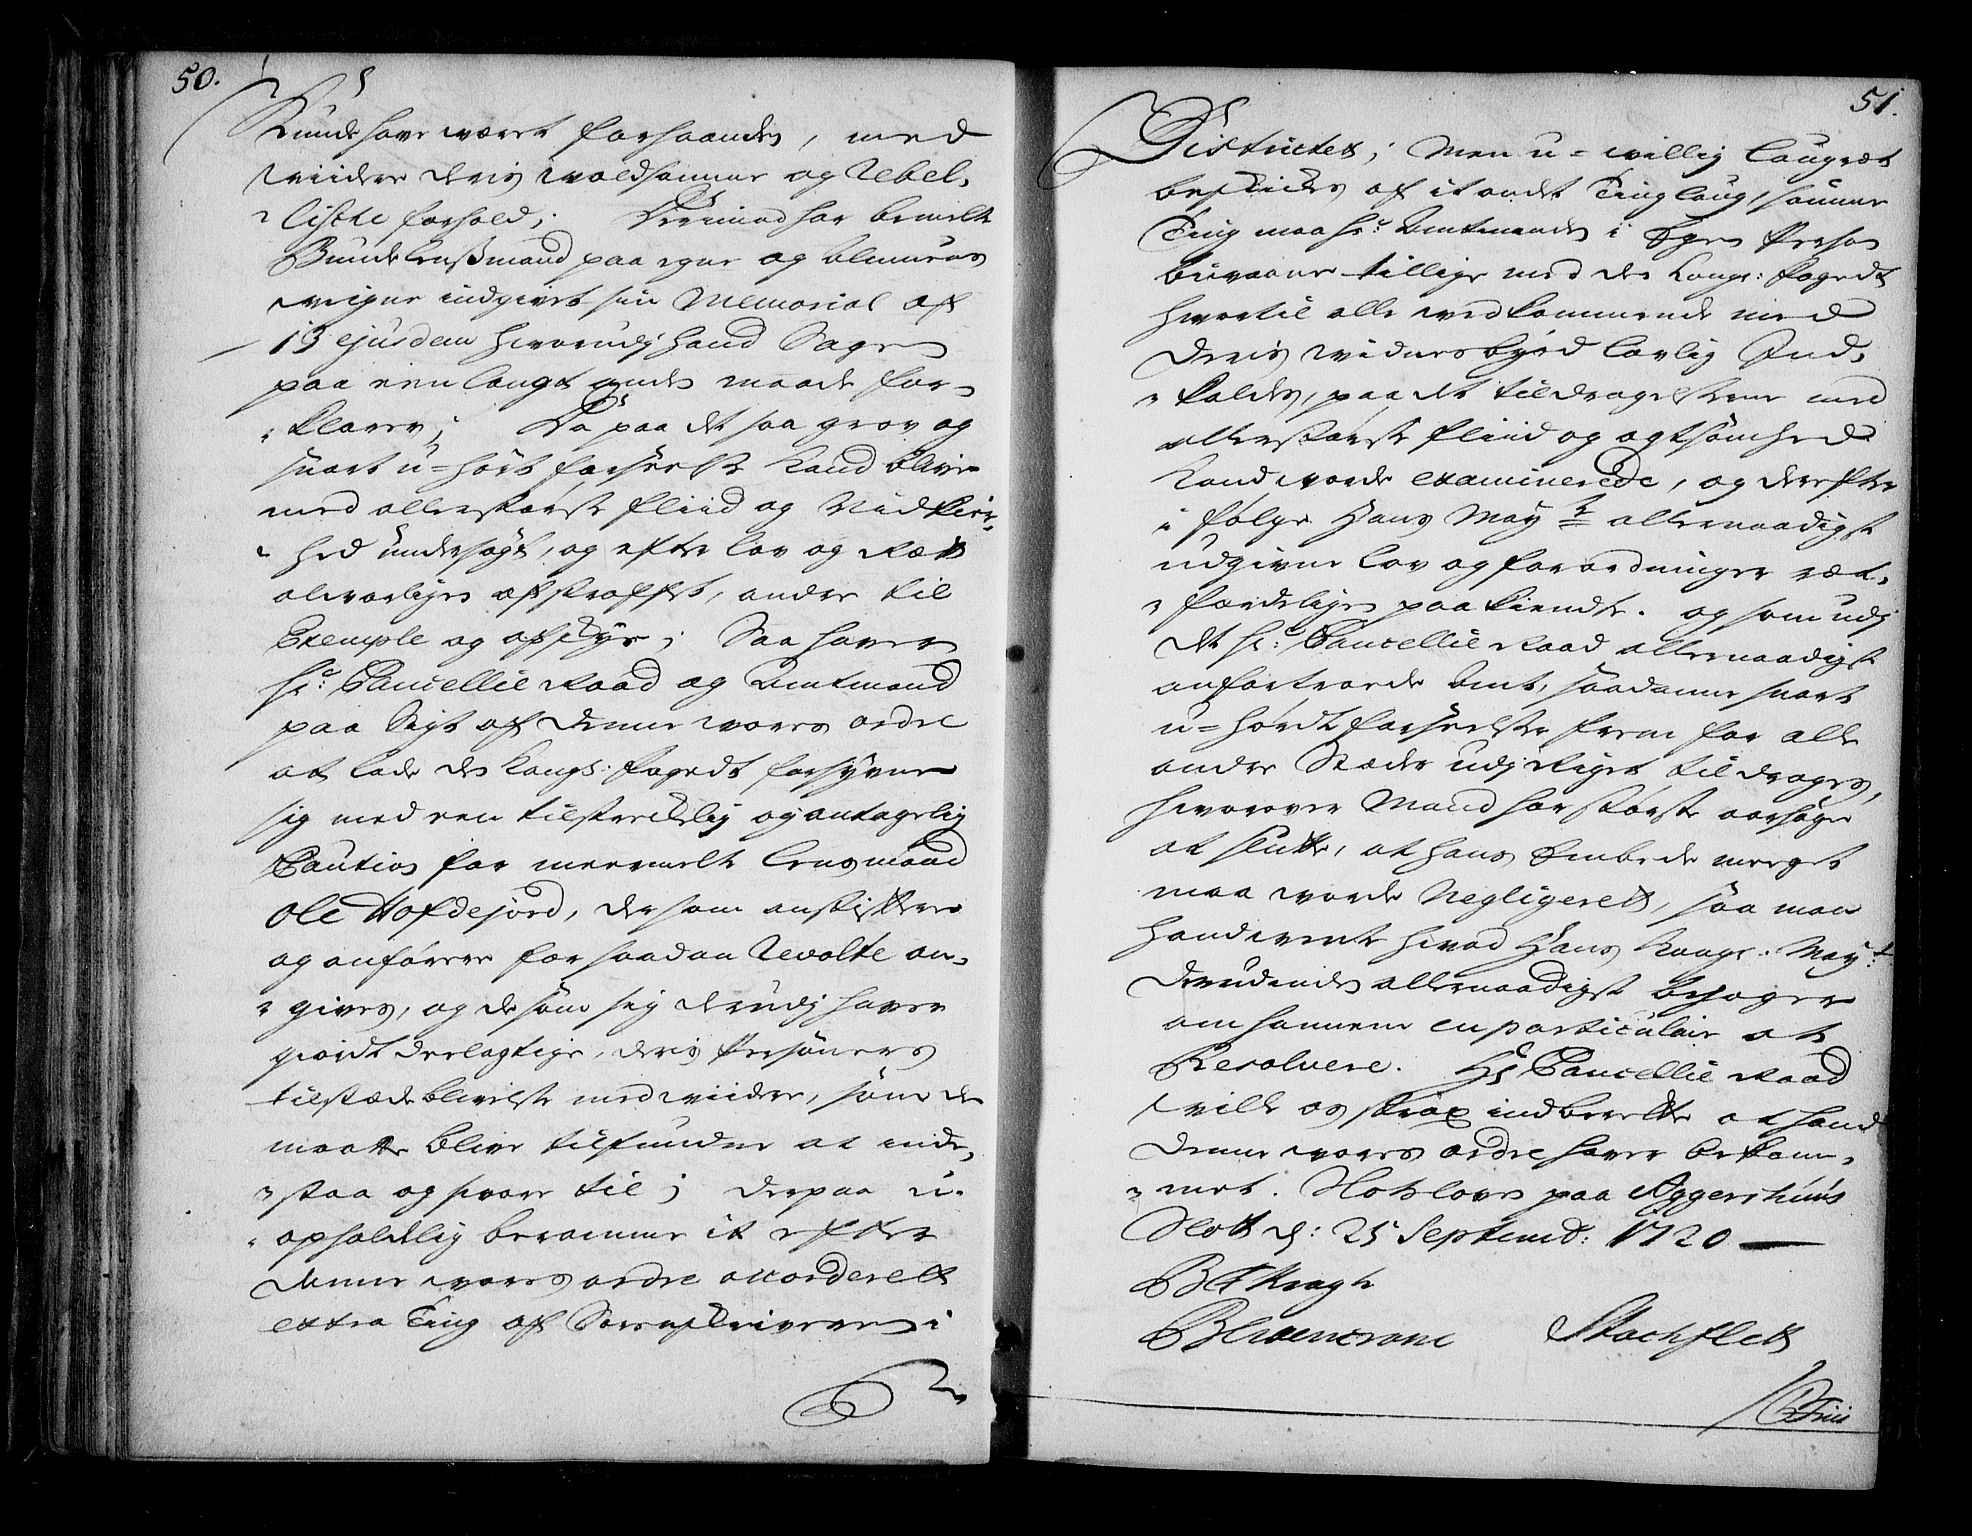 50.
Kunde have været forhaanden, med
viidere deris voldsomme og Rebel-
liske forhold; Derimod har bemelte
Bunde lensmand paa egne og almues
vegne indgivet sin Memorial af
13 ejusdem hvorudj hand Sagen
paa een langt anden maade for-
klarer; Da paa det saa grov og
snart u-hørt forseelse kand blive
med allerstørste fliid og Nidkier-
hed undersøgt, og efter lov og Rætt
alvorligen afstraffet, andre til
Exemple og afskye; Saa haver
Hr: Cancellie Raad og Amtmand
paa Sigt af denne vores ordre
at lade den Kongl: fogedt forsyene
sig med een tilstreckelig og antagelig
Caution for meermelte lensmand
Ole Hofdejord, der som anstiftere
og anførere for saadan Revolte an-
gives, og de som sig derudj haver
giordt deelagtige, deris Persohners
tilstædeblivelse med viidere, som de
maatte blive tilfunden at inde-
staa og svare til; derpaa u-
opholdlig beramme it efter
denne vores ordre accorderett
extra Ting af Sorenskriveren i
51.
Districtet; Men u-willig laugret
beskiides af it andet Tinglaug, samme
Ting maa Hr: Amtmanden i Egen Persohn
bievaane tillige med den Kongl: fogedt
hvortil alle vedkommende med
deris vidnesbyrd lovlig Ind-
kaldes, paa det tildragelserne med
allerstørste fliid og agtsomhed
kand vorde examinerede, og derefter
i følge Hans Maytz allernaadigst
udgivne lov og forordninger ræt-
færdeligen paakiendte. og som udj
det Hr: Cancellie Raad allernaadigst
anfortroede Amt, saadanne snart
u-hørdt forseelser frem for alle
andre Stæder udj Riget tildrages,
hvorover Mand har største aarsage
at slutte, at hans Embede meeget
maa vorde Negligerett, saa maa
hand vente hvad Hans Kongl: Mayt:
derudinden allernaadigst behager
om hannem en particulair at
Resolvere. Hr Cancellie Raad
ville os strax indberette at hand
denne vores ordre haver bekom-
met. Slotsloven paa Aggershuus
Slott d: 25 Septemb: 1720
Stochflett